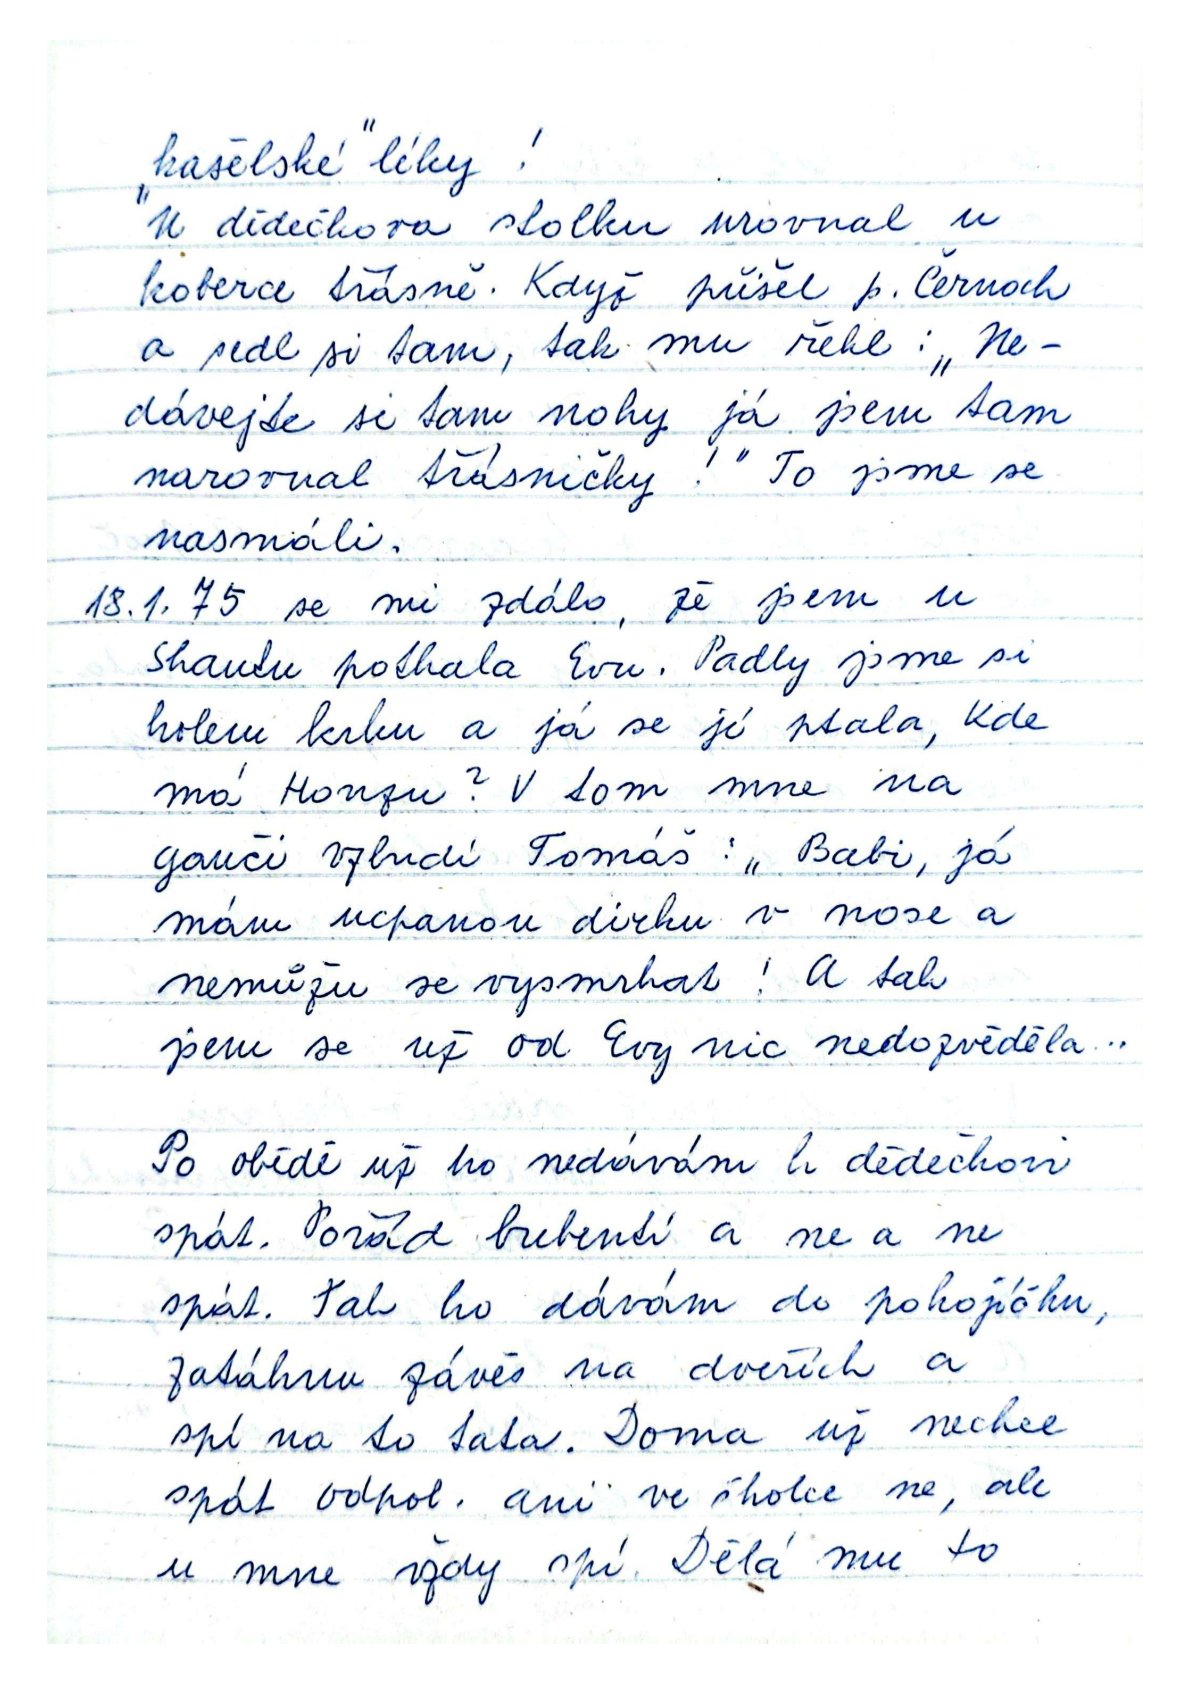 „kašelské" léky !
U dědečkova stolku urovnal u
koberce třásně. Když přišel p. Černoch
a sedl si tam, tak mu řekl : „Ne-
dávejte si tam nohy já jsem tam
narovnal třásničky !" To jsme se
nasmáli.
18.1.75 se mi zdálo, že jsem u
Shantu potkala Evu. Padly jsme si
kolem krku a já se jí ptala, kde
má Honzu? V tom mne na
gauči vzbudí Tomáš : „Babi, já
mám ucpanou dirku v nose a
nemůžu se vysmrkat ! A tak
jsem se už od Evy nic nedozvěděla...
Po obědě už ho nedávám k dědečkovi
spát. Pořád brebentí a ne a ne
spát. Tak ho dávám do pokojíčku,
zatáhnu závěs na dveřích a
spí na to tata. Doma už nechce
spát odpol. ani ve školce ne, ale
u mne vždy spí. Dělá mu to